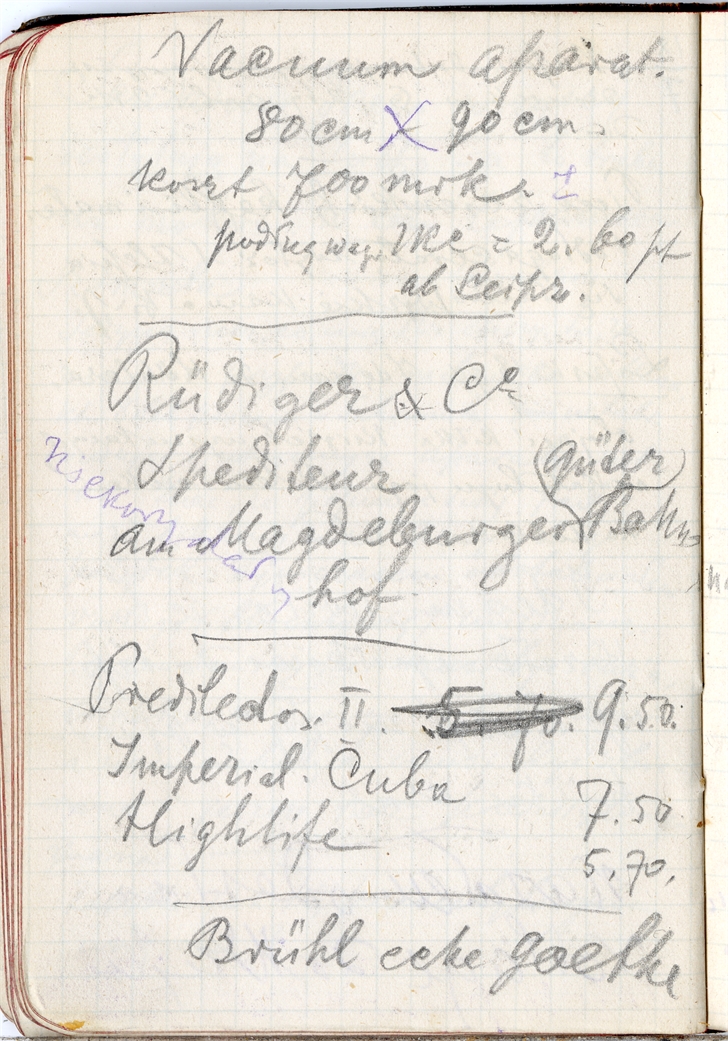 Vacuum aparat.
80 cm X 90 cm.
koszt 700 mrk. ±
podług wagi 1 Kc = 2.60 pf
ab Leipz.
Rüdiger & Co
Spediteur
(Güter)
am Magdeburger Bahn-
hof
Prediledos. II. 5.70. 9.50.
Imperial. Cuba 7.50
Highlife 5.70.
Brühl ecke goethe